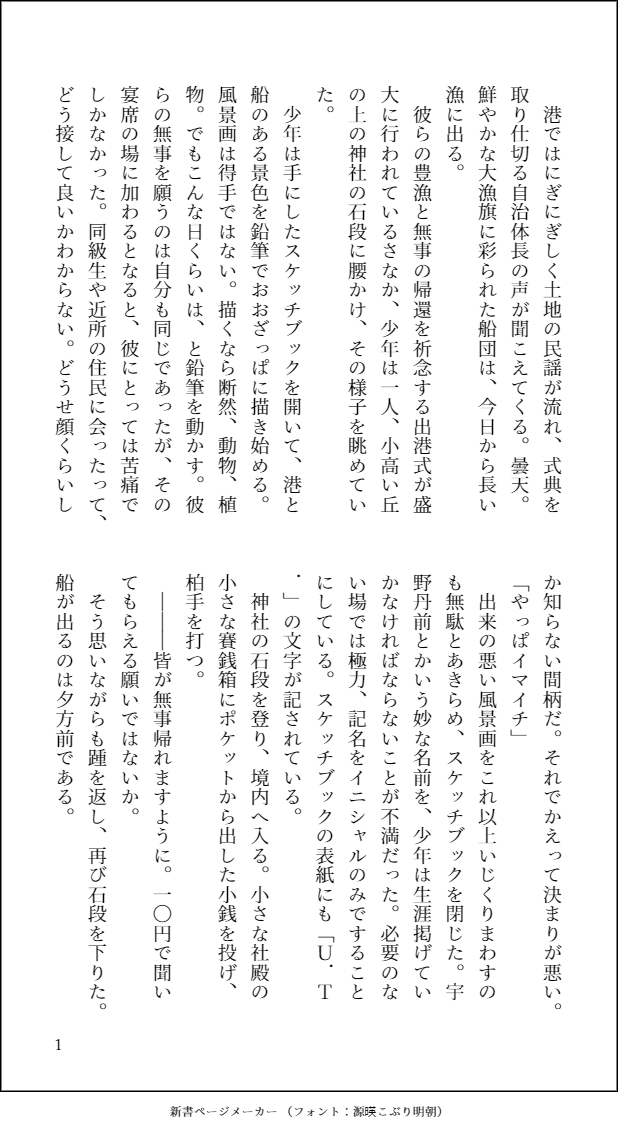 港ではにぎにぎしく土地の民謡が流れ、式典を
取り仕切る自治体長の声が聞こえてくる。曇天。
鮮やかな大漁旗に彩られた船団は、今日から長い
漁に出る。
　彼らの豊漁と無事の帰還を祈念する出港式が盛
大に行われているさなか、少年は一人、小高い丘
の上の神社の石段に腰かけ、その様子を眺めてい
た。
　少年は手にしたスケッチブックを開いて、港と
船のある景色を鉛筆でおおざっぱに描き始める。
風景画は得手ではない。描くなら断然、動物、植
物。でもこんな日くらいは、と鉛筆を動かす。彼
らの無事を願うのは自分も同じであったが、その
宴席の場に加わるとなると、彼にとっては苦痛で
しかなかった。同級生や近所の住民に会ったって、
どう接して良いかわからない。どうせ顔くらいし
か知らない間柄だ。それでかえって決まりが悪い。
「やっぱイマイチ」
　出来の悪い風景画をこれ以上いじくりまわすの
も無駄とあきらめ、スケッチブックを閉じた。宇
野丹前とかいう妙な名前を、少年は生涯掲げてい
かなければならないことが不満だった。必要のな
い場では極力、記名をイニシャルのみですること
にしている。スケッチブックの表紙にも「U．T
．」の文字が記されている。
　神社の石段を登り、境内へ入る。小さな社殿の
小さな賽銭箱にポケットから出した小銭を投げ、
柏手を打つ。
　――皆が無事帰れますように。一〇円で聞い
てもらえる願いではないか。
　そう思いながらも踵を返し、再び石段を下りた。
船が出るのは夕方前である。
1
新書ページメーカー（フォント：源暎こぶり明朝）